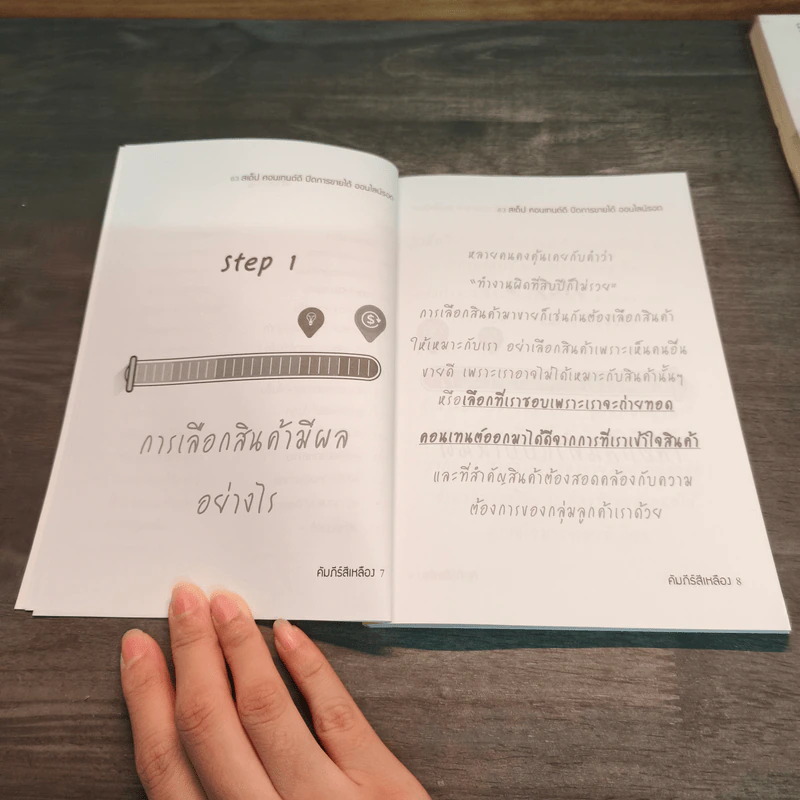 63 สเต็ป คอนเทนต์ดี ปิดการขายได้ ออนไลน์รอด
step 1
การเลือกสินค้ามีผล
อย่างไร
คัมภีร์สีเหลือง 7
63 สเต็ป คอนเทนต์ดี ปิดการขายได้ ออนไลน์รอด
หลายคนคงคุ้นเคยกับคำว่า
"ทำงานผิดที่สิบปีก็ไม่รวย"
การเลือกสินค้ามาขายก็เช่นกันต้องเลือกสินค้า
ให้เหมาะกับเรา อย่าเลือกสินค้าเพราะเห็นคนอื่น
ขายดี เพราะเราอาจไม่ได้เหมาะกับสินค้านั้นๆ
หรือเลือกที่เราชอบเพราะเราจะถ่ายทอด
คอนเทนต์ออกมาได้ดีจากการที่เราเข้าใจสินค้า
และที่สำคัญสินค้าต้องสอดคล้องกับความ
ต้องการของกลุ่มลูกค้าเราด้วย
คัมภีร์สีเหลือง 8